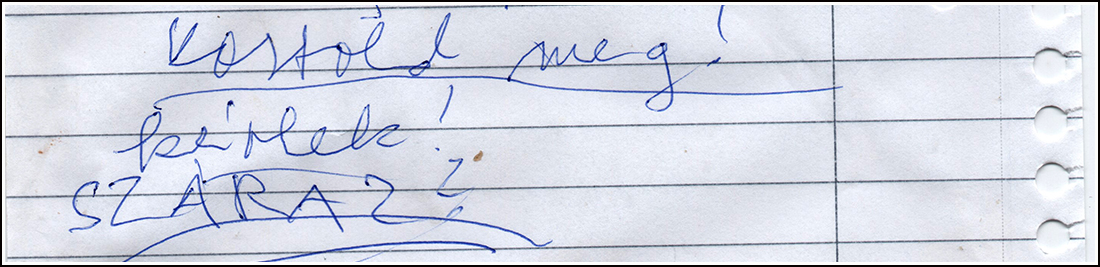 Kostold meg!
kérlek!
SZÁRAZ?